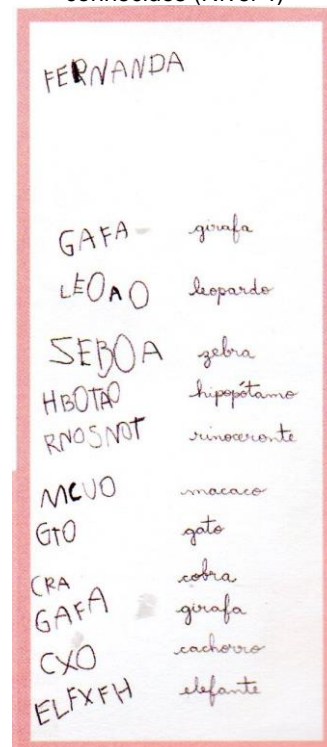 conhecidos (Nível 4)
FERNANDA
GAFA girafa
LEOAO leopardo
SEBOA zebra
HBOTAO hipopótamo
RNOSNOT rinoceronte
MCUO macaco
GTO gato
CRA cobra
GAFA girafa
CXO cachorro
ELFXFH elefante